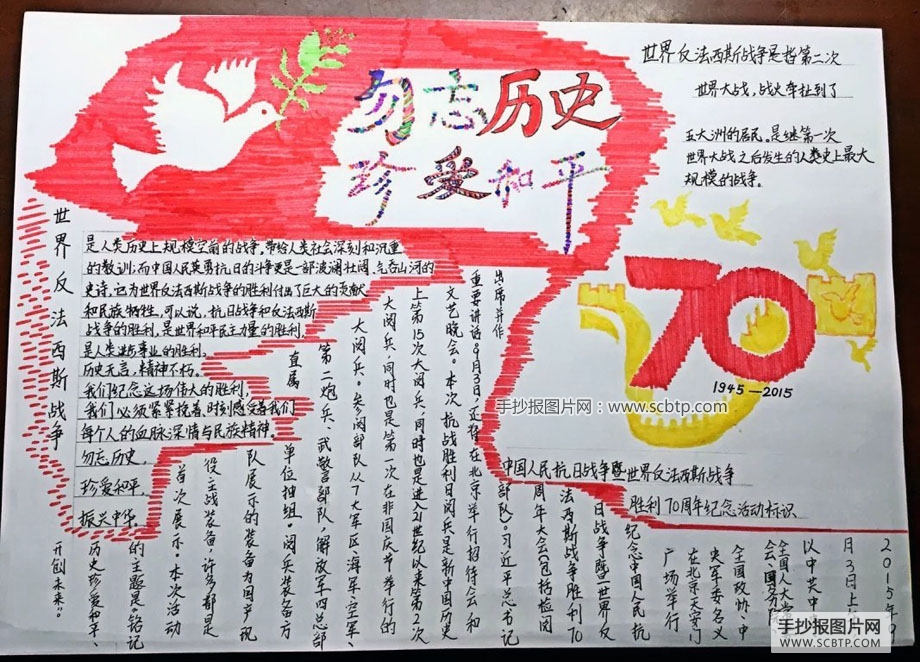 勿忘历史
珍爱和平
世界反法西斯战争是指第二次
世界大战,战史牵扯到了
五大洲的居民。是继第一次
世界大战之后发生的人类史上最大
规模的战争。
世界反法西斯战争
是人类历史上规模空前的战争,带给人类社会深刻和沉重
的教训;而中国人民英勇抗日的斗争更是一部波澜壮阔、气吞山河的
史诗,它为世界反法西斯战争的胜利付出了巨大的贡献
和民族牺牲。可以说,抗日战争和反法西斯
战争的胜利,是世界和平民主力量的胜利,
是人类进步事业的胜利。
历史无言,精神不朽。
我们纪念这场伟大的胜利,
我们必须紧紧挽着,时刻感受着我们
每个人的血脉深情与民族精神。
勿忘历史,
珍爱和平,
振兴中华。
70
1945—2015
手抄报图片网:www.scbtp.com
中国人民抗日战争暨世界反法西斯战争
胜利70周年纪念活动标识
2015年9
月3日上
以中共中
全国人大常
会、国务院
全国政协、中
央军委名义
在北京天安门
广场举行
纪念中国人民抗
日战争暨世界反
法西斯战争胜利70
周年大会(包括检阅
部队)。习近平总书记
出席并作
重要讲话9月3日,还将在北京举行招待会和
文艺晚会。本次抗战胜利日阅兵是新中国历史
上第15次大阅兵,同时也是进入21世纪以来第2次
大阅兵,同时也是第一次在非国庆节举行的
大阅兵。参阅部队从7大军区、海军、空军、
第二炮兵、武警部队、解放军四总部
直属
单位抽组。阅兵装备方
队展示的装备为国产现
役主战装备,许多都是
首次展示。本次活动
的主题是“铭记
历史珍爱和平、
开创未来”。
手抄报图片网
WWW.SCBTP.COM